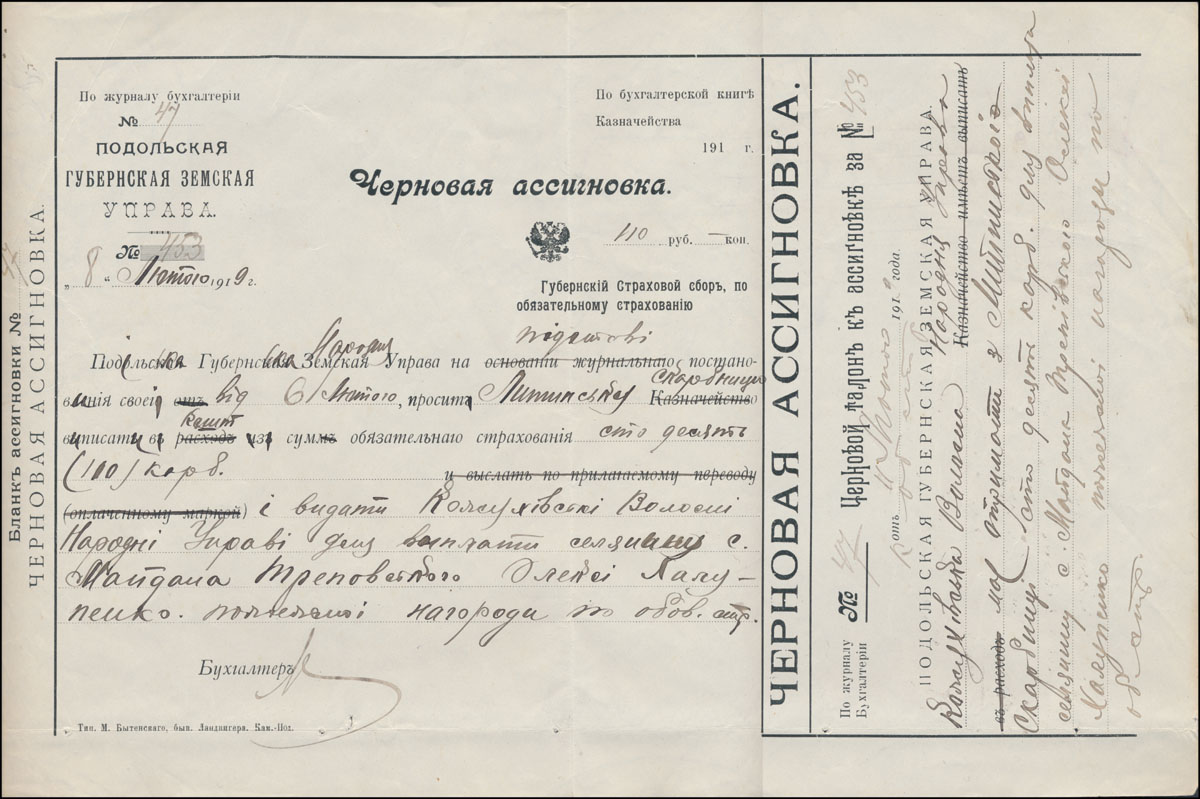 По журналу бухгалтеріи
№ 47
ПОДОЛЬСКАЯ
ГУБЕРНСКАЯ ЗЕМСКАЯ
УПРАВА.
№ 453
„ 8 “ Лютого 1919 г.
По бухгалтерской книгѣ
Казначейства
191 г.
Черновая ассигновка.
110 руб. — коп.
Губернскій Страховой сборъ, по
обязательному страхованію
Народня підставі
Подільська Губернська Земская Управа на основаніи журнальнаго постано-
скарбницю
вління своєї отъ від 6 Лютого, просить Літинську Казначейство
кошт
виписати в расходъ із суммъ обязательнаго страхованія сто десять
(110) карб. и выслать по прилагаемому переводу
(оплаченному маркой) і видати Кожухівські Волосні
Народні Управі для виплати селянину с.
Майдана Треповського Олексі Халу-
пенко. пожежної нагороди по обов. стр.
Бухгалтеръ
Тип. М. Бытенскаго, быв. Ландвигера. Кам.-Под.
Бланкъ ассигновки № 47
ЧЕРНОВАЯ АССИГНОВКА.
ЧЕРНОВАЯ АССИГНОВКА.
По журналу
Бухгалтеріи № 47 Черновой талонъ къ ассигновкѣ за № 453
191 года.
ПОДОЛЬСКАЯ ГУБЕРНСКАЯ ЗЕМСКАЯ УПРАВА.
Кожухівська Волосна Народня Управа Казначейство имѣетъ выписать
въ расходъ має отримати з Літинської
Скарбниці сто десять карб. для виплати
селянину с. Майдана Трепівського Олексі
Халупенко пожежної нагороди по
об. стр.